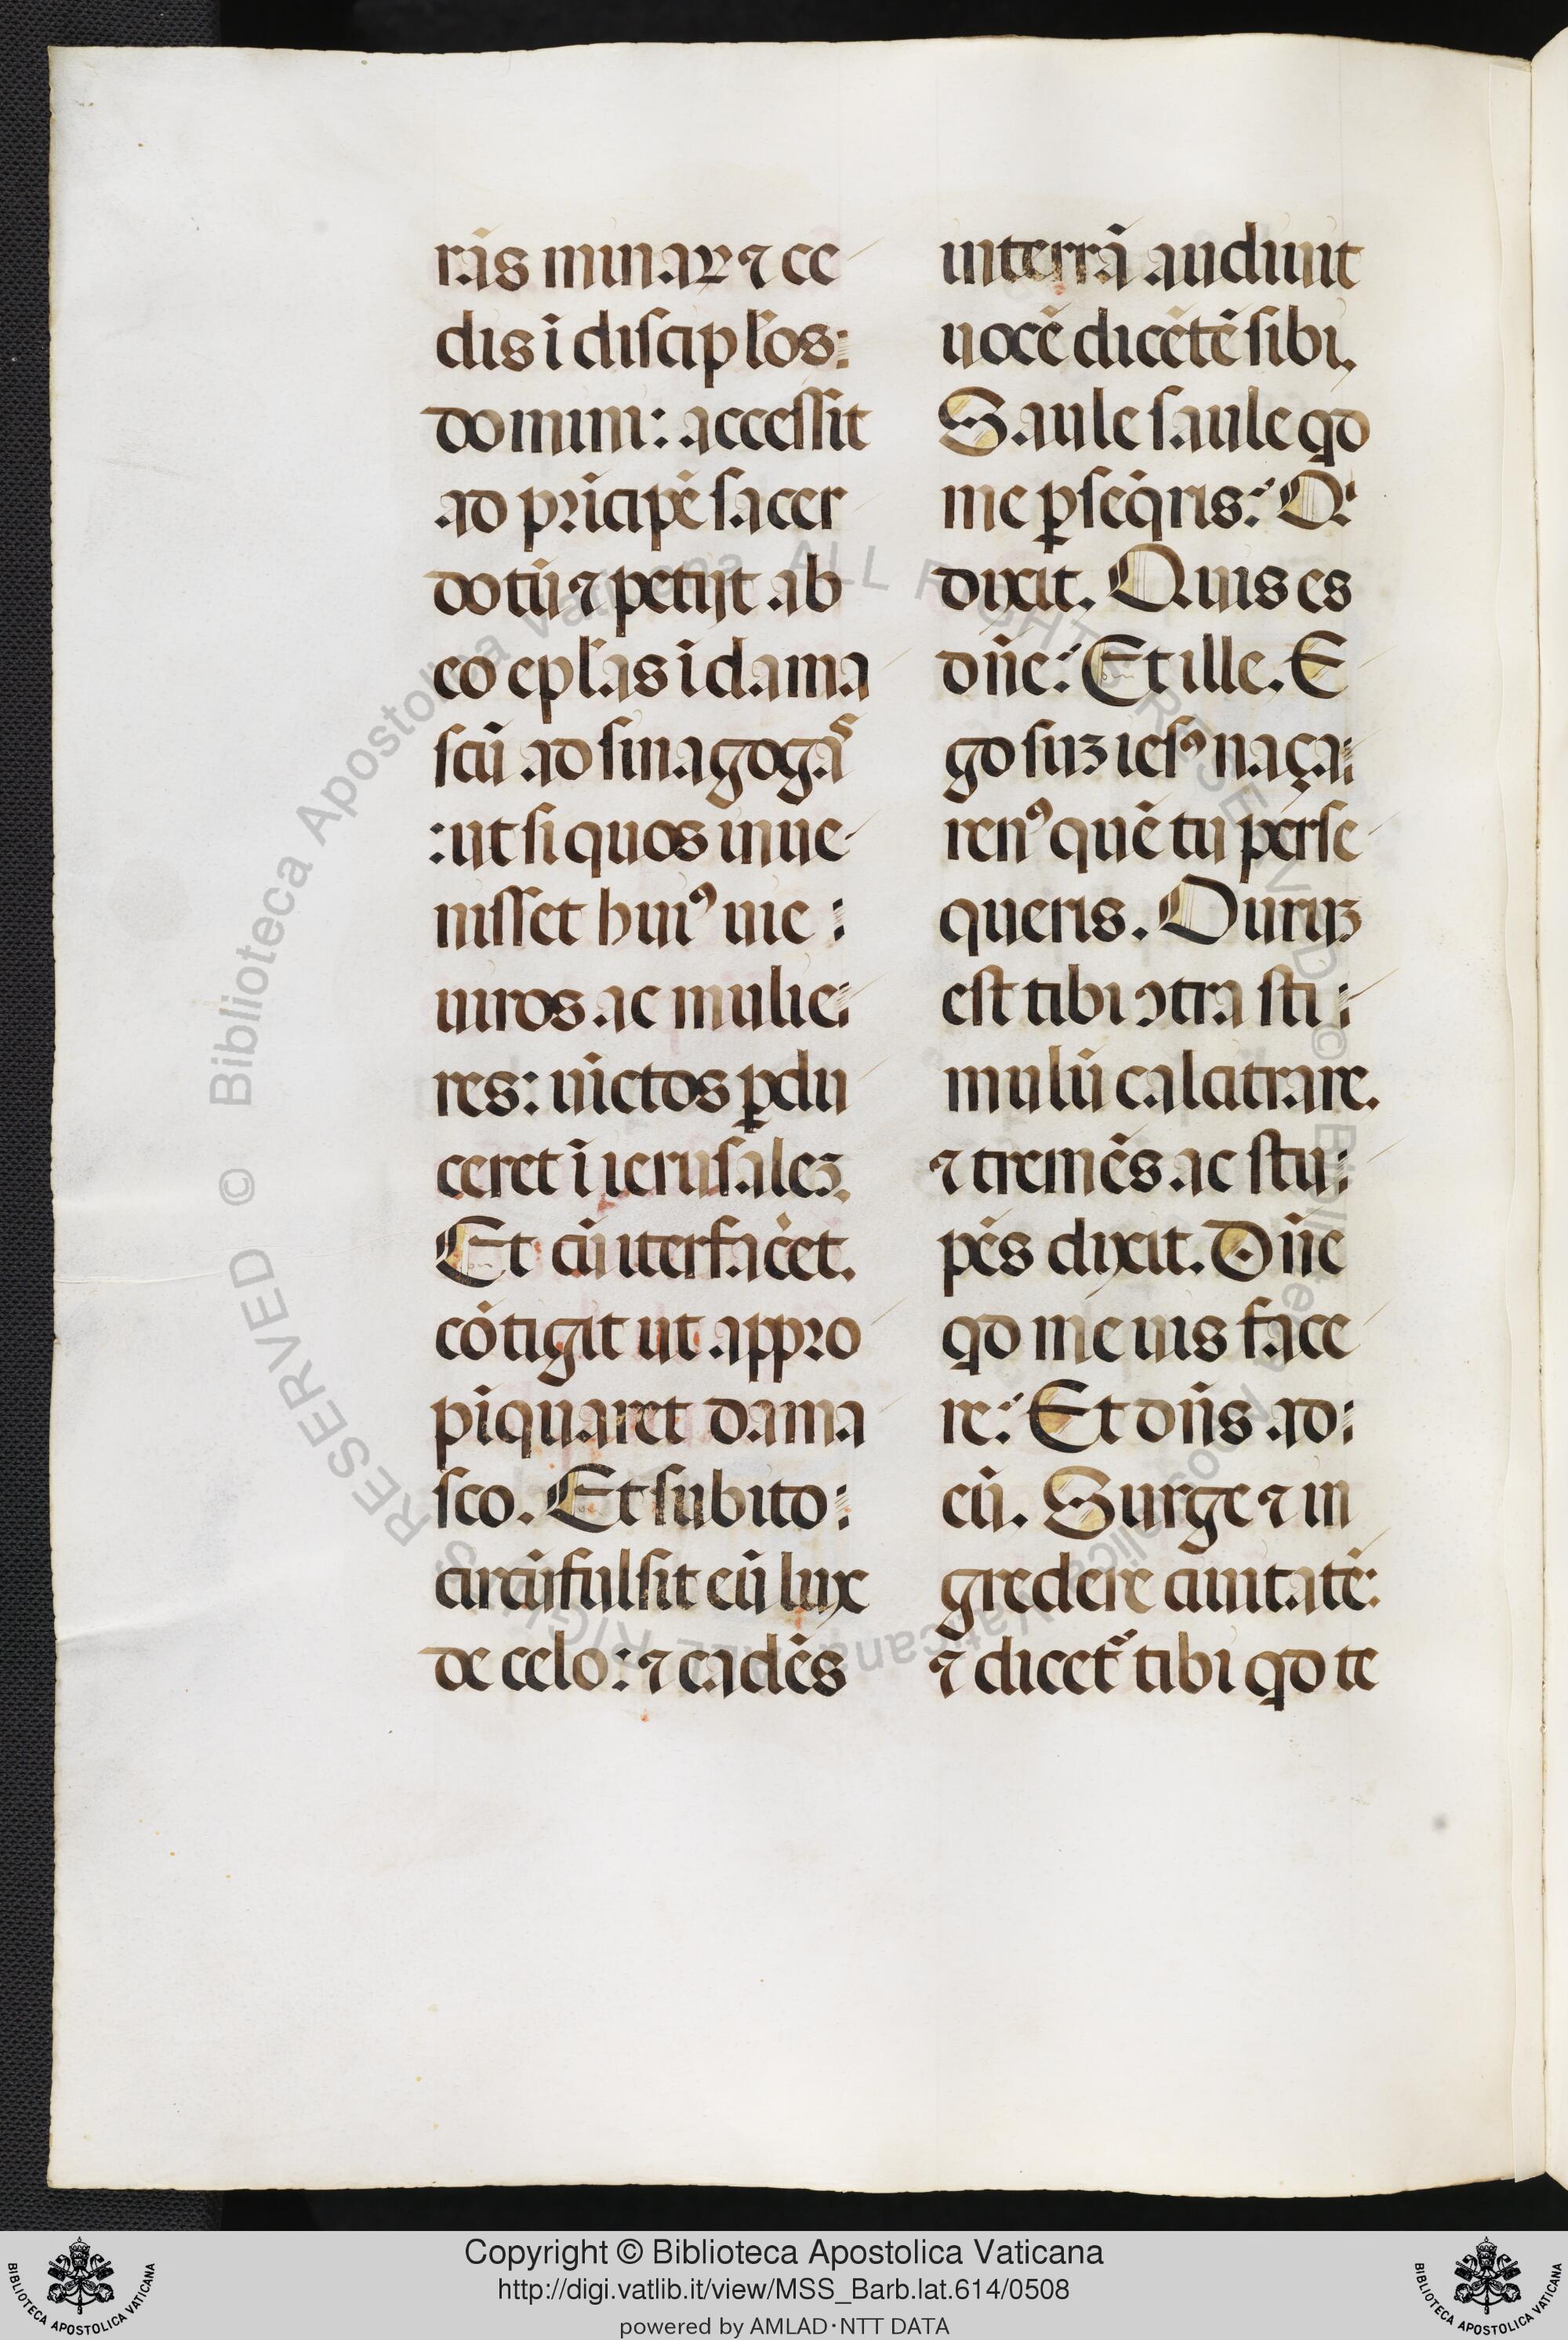 rās minaꝝ ⁊ ce
dis ī discipłos:
domini: accessit
ad prīcipē sacer
dotū ⁊ petijt ab
eo epłas ī dama
scū ad sinagogāˢ
: ut si quos inue
nisset huiꝰ uie :
uiros ac mulie:
res: uīctos ꝑdu
ceret ī ierusaleꝫ.
Et cū iter facēet.
cōtigit ut appro
pīquaret dama
sco. Et subito:
circūfulsit eū lux
de celo: ⁊ cadēs
in terrā audiuit
uocē dicētē sibi.
Saule saule qd
me ꝑseq̄ris: Qⁱ
dixit. Quis es
dn̄e: Et ille. E
go suꝫ iesꝰ naça:
renꝰ quē tu perse
queris. Duruꝫ
est tibi ↄtra sti:
mulū calcitrare.
⁊ tremēs ac stu:
pēs dixit. Dn̄e
qd me uis face
re: Et dn̄s ad:
eū. Surge ⁊ in
gredere ciuitatē:
⁊ dicet᷑ tibi qd te
© Biblioteca Apostolica Vaticana ALL RIGHTS RESERVED © Biblioteca Apostolica Vaticana ALL RIGHTS RESERVED
Copyright © Biblioteca Apostolica Vaticana
http://digi.vatlib.it/view/MSS_Barb.lat.614/0508
powered by AMLAD·NTT DATA
BIBLIOTECA APOSTOLICA VATICANA
BIBLIOTECA APOSTOLICA VATICANA